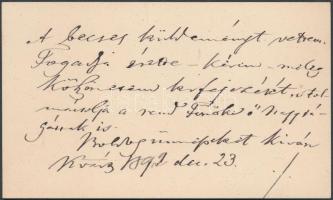 A becses küldeményt vettem.
Fogadja érette – kérem – meleg
köszönetem kifejezését. s tol-
mácsolja a rend Főnöke Ő Nagysá-
gának is.
Boldog ünnepeket kíván
1892 dec. 23.